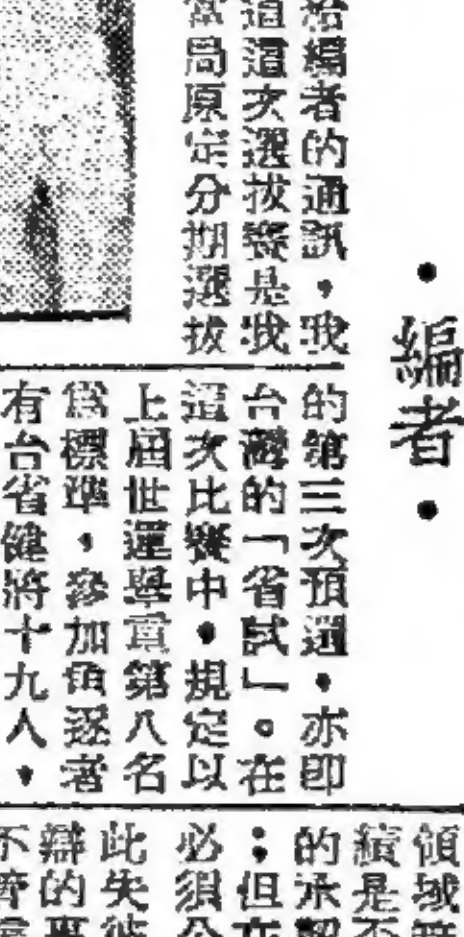 ・編者・
給編者的通訊，我
道這次選拔賽是我
當局原定分期選拔
的第三次預選，亦即
台灣的「省試」。在
這次比賽中，規定以
上屆世運舉重第八名
為標準，參加角逐者
有台省健將十九人，
領域
績是否
的承認
；但在
必須
此失彼
辯的事
不濟